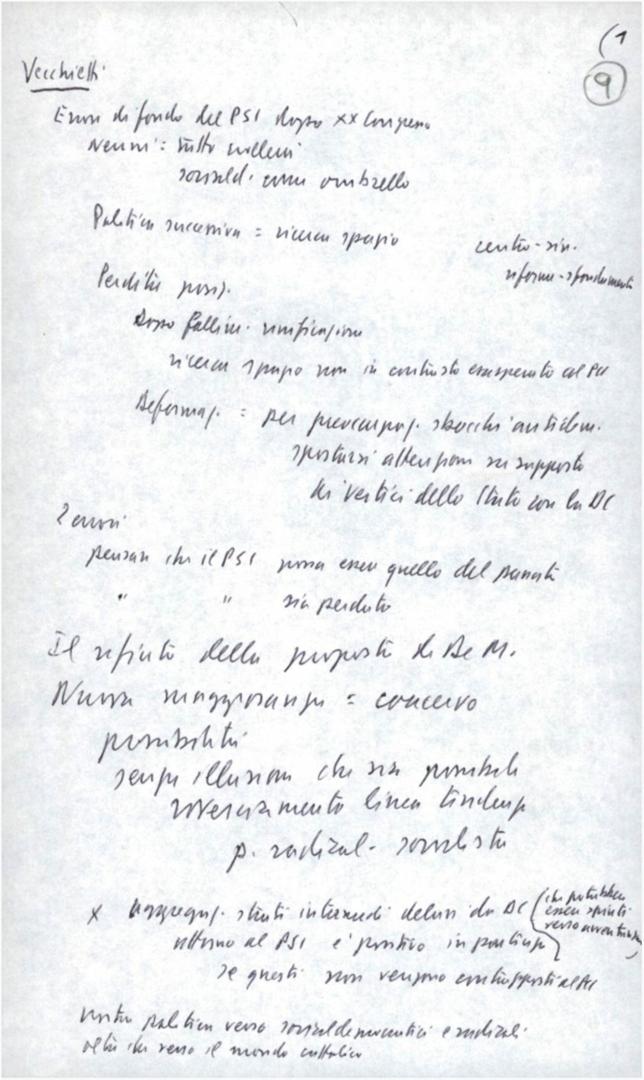 (1
9
Vecchietti
Errori di fondo del PSI dopo XX Congresso
Nenni = tutto
sociald. come ombrello
Politica successiva = ricerca spazio
centro-sin.
riforme-sfondamento
Perdita posiz.
Dopo fallim. unificazione
ricerca spazio non in contrasto esasperato col PCI
Deformaz. = per preoccupaz. sbocchi antidem.
spostarsi attenzione su supporto
dei vertici dello Stato con la DC
2 errori
pensare che il PSI possa essere quello del passato
" " sia perduto
Il rifiuto della proposta di De M.
Nuova maggioranza =
possibilità
senza illusioni che sia possibile
rovesciamento linea tendenza
p. radical-socialista
x aggregaz. strati intermedi delusi da DC (che potrebbero
essere spinti
verso
attorno al PSI è positivo in partenza
se questi non vengono contrapposti al PCI
nostra politica verso socialdemocratici e radicali
oltre che verso il mondo cattolico